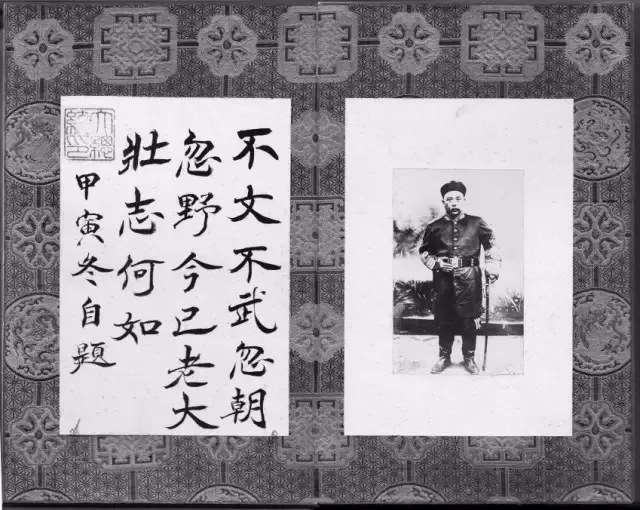 不文不武忽朝
忽野今已老大
壯志何如
甲寅冬自題
大總
統印